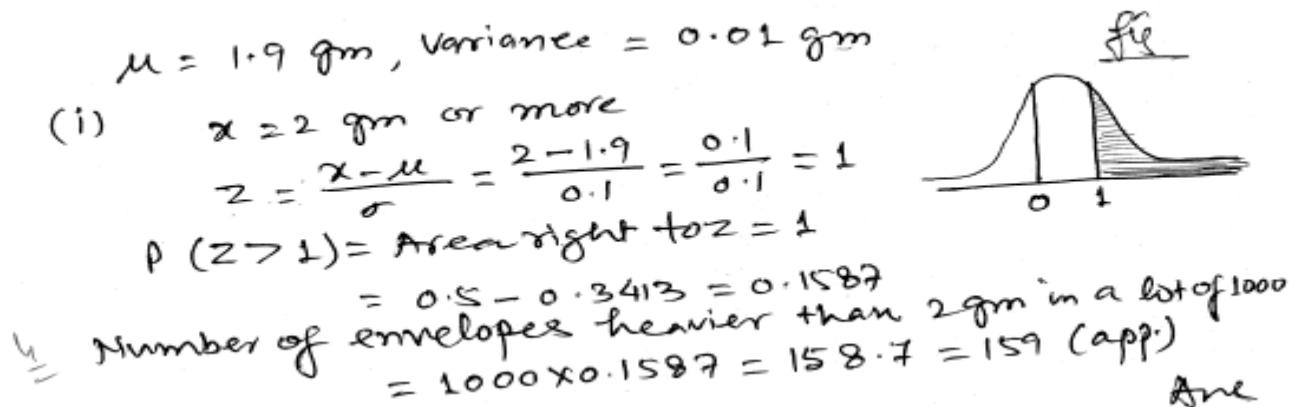 μ = 1.9 gm, Variance = 0.01 gm
fig
(i) x = 2 gm or more
z = x-μ/σ = 2-1.9/0.1 = 0.1/0.1 = 1
0 1
P (Z > 1) = Area right to z = 1
= 0.5 - 0.3413 = 0.1587
Number of envelopes heavier than 2 gm in a lot of 1000
= 1000 x 0.1587 = 158.7 = 159 (app.)
Ans